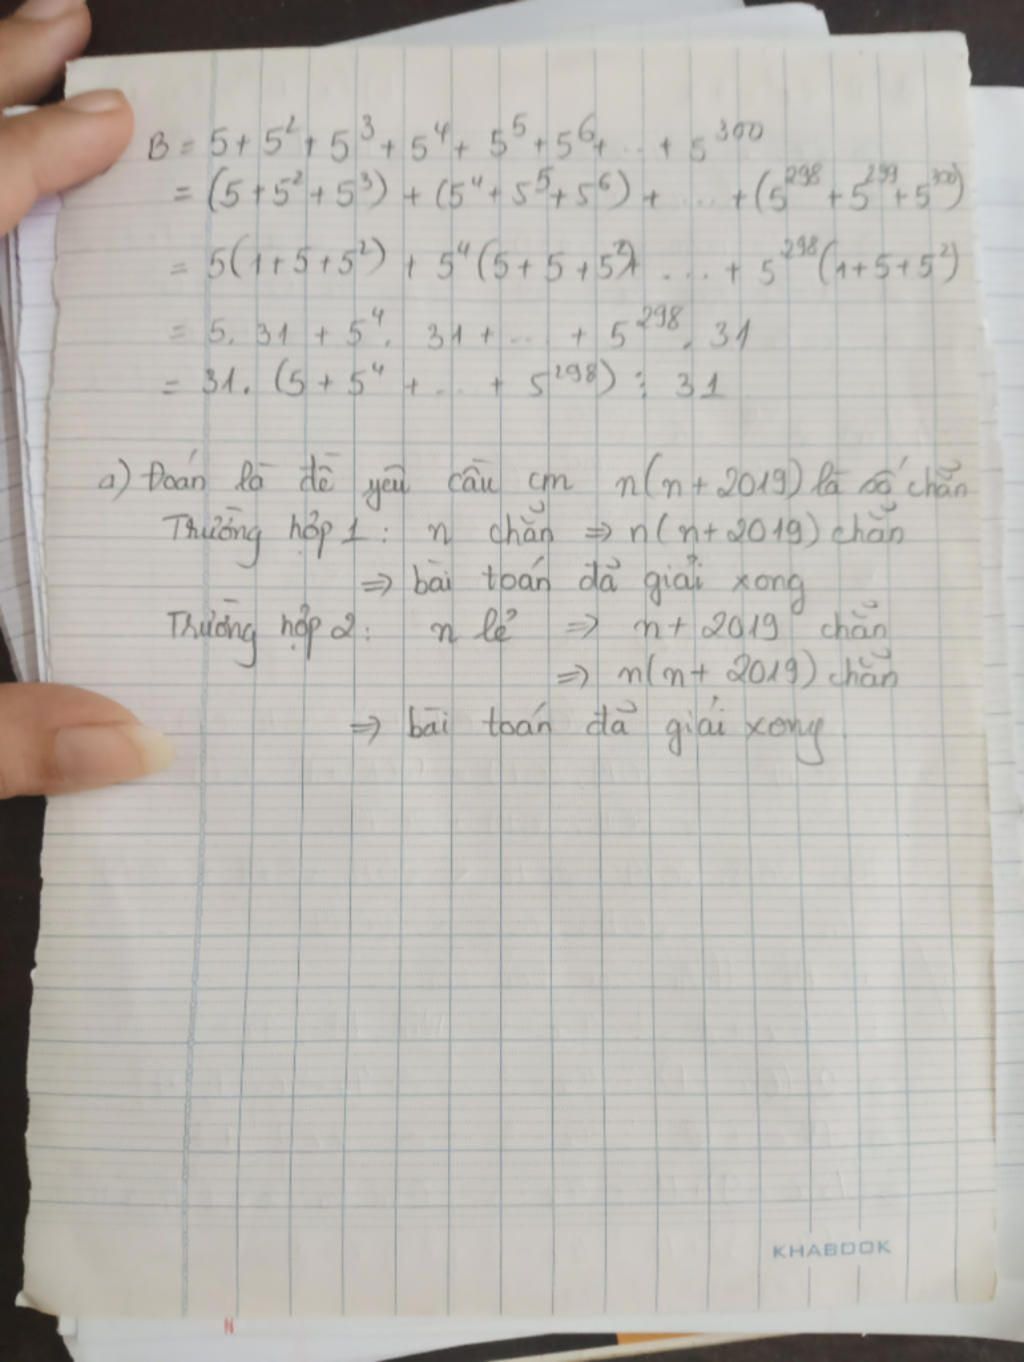 B = 5 + 5² + 5³ + 5⁴ + 5⁵ + 5⁶ + ... + 5³⁰⁰
= (5 + 5² + 5³) + (5⁴ + 5⁵ + 5⁶) + ... + (5²⁹⁸ + 5²⁹⁹ + 5³⁰⁰)
= 5(1 + 5 + 5²) + 5⁴(5 + 5 + 5²) + ... + 5²⁹⁸(1 + 5 + 5²)
= 5. 31 + 5⁴. 31 + ... + 5²⁹⁸. 31
= 31. (5 + 5⁴ + ... + 5²⁹⁸) ⋮ 31
a) Đoán là đề yêu cầu cm n(n + 2019) là số chẵn
Trường hợp 1 : n chẵn ⇒ n(n + 2019) chẵn
⇒ bài toán đã giải xong
Trường hợp 2 : n lẻ ⇒ n + 2019 chẵn
⇒ n(n + 2019) chẵn
⇒ bài toán đã giải xong
KHABOOK
N